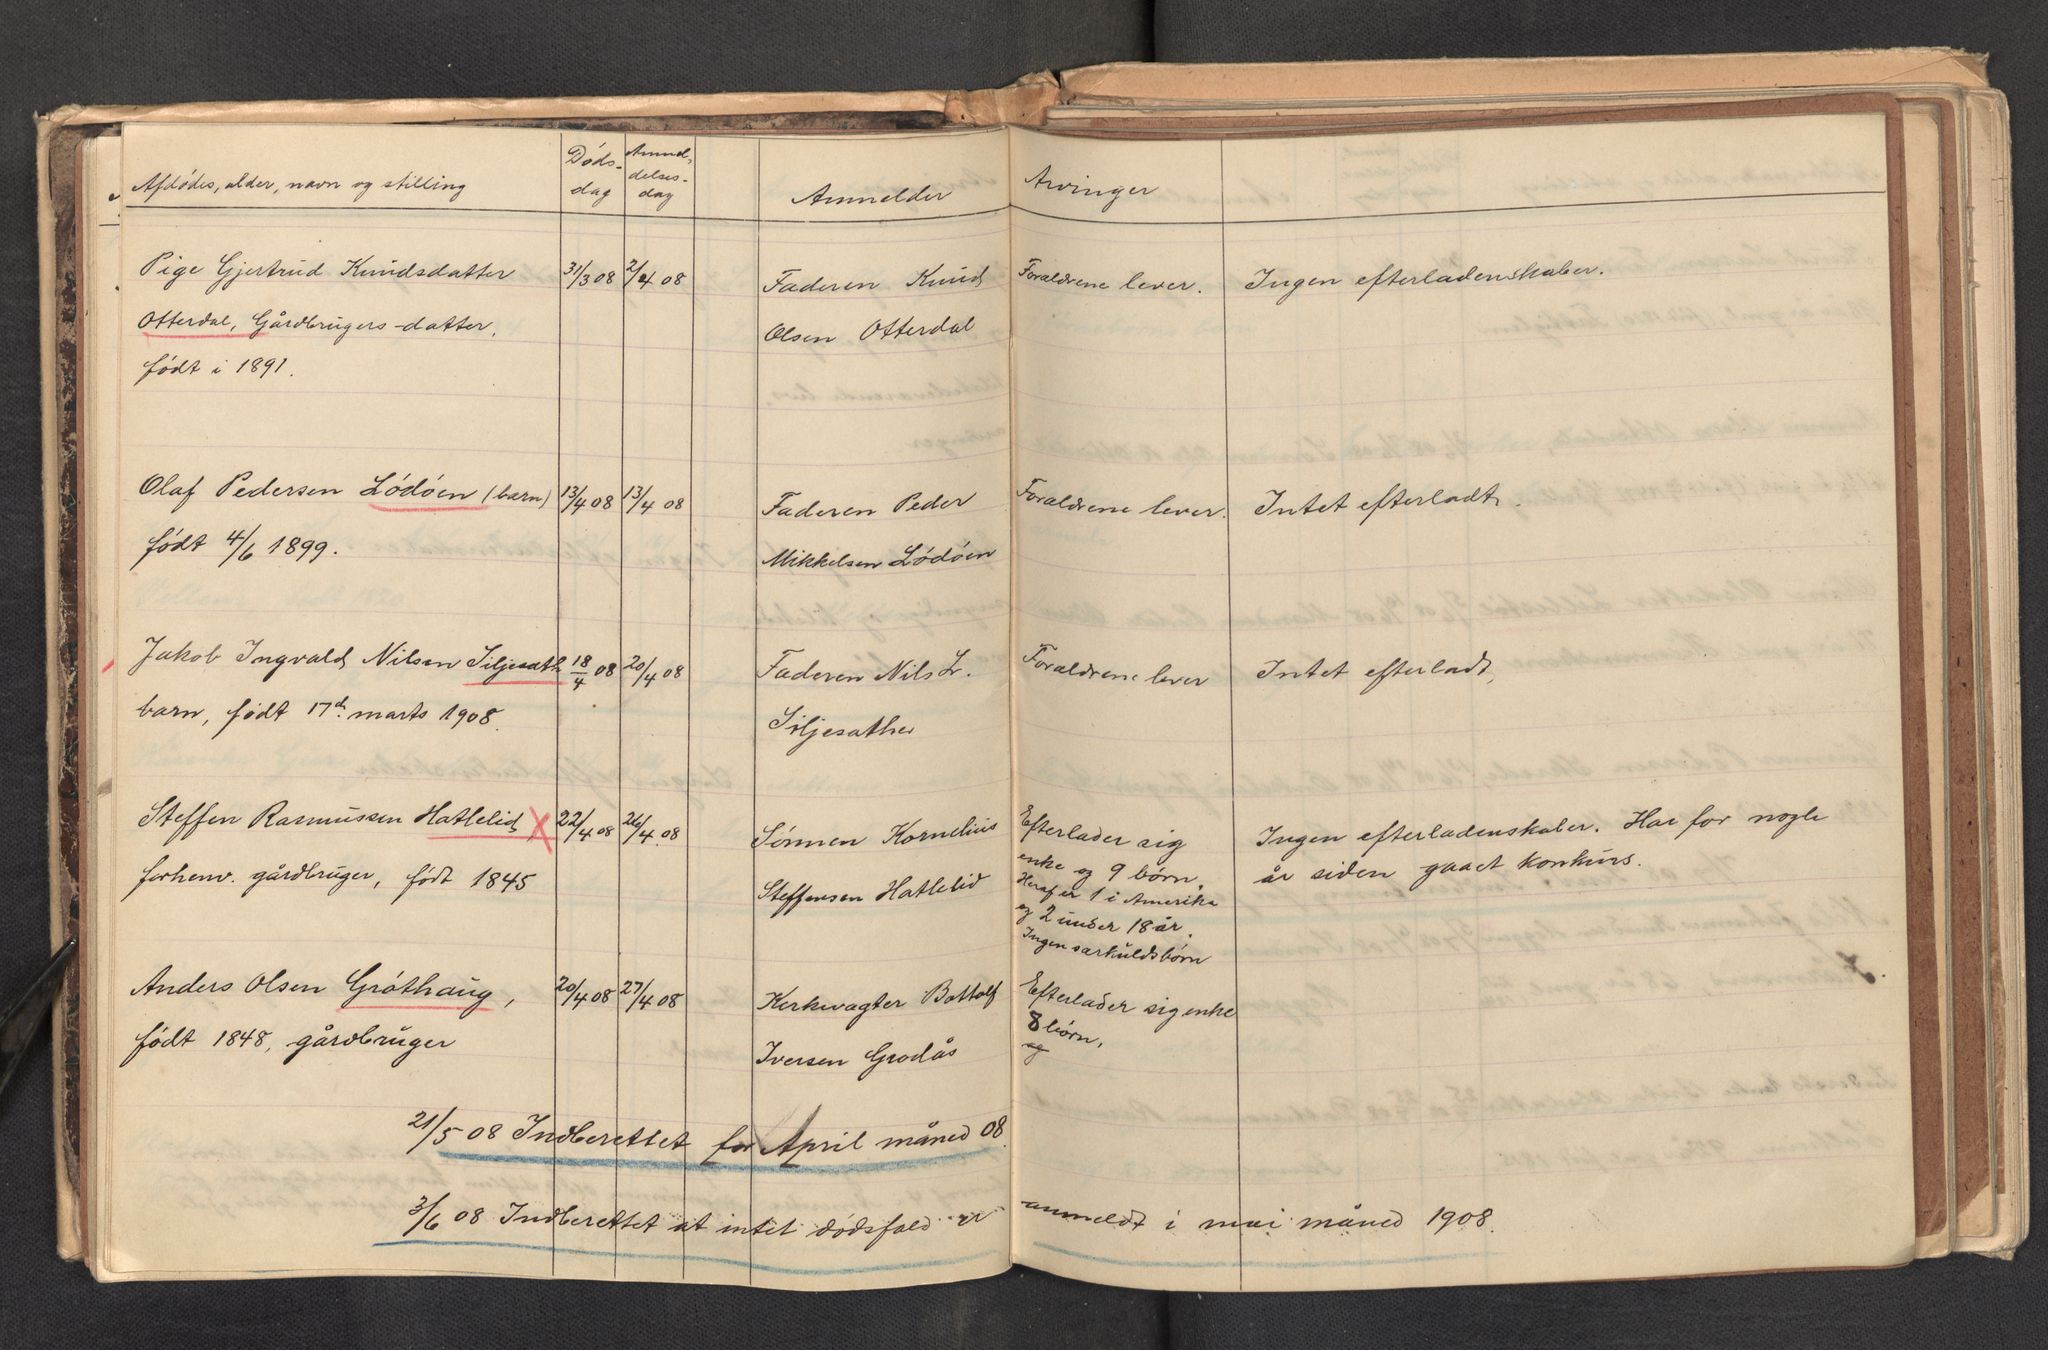 Afdødes, alder, navn og stilling
Døds-
dag
Anmel-
delses-
dag
Anmelder
Arvinger
Pige Gjertrud Knudsdatter 31/3 08 2/4 08 Faderen Knud Forældrene lever. Ingen efterladenskaber.
Otterdal, Gårdbrugers-datter, Olsen Otterdal
født i 1891.
Olaf Pedersen Lødøen (barn) 13/4 08 13/4 08 Faderen Peder Forældrene lever. Intet efterladt.
født 4/6 1899. Mikkelsen Lødøen
Jakob Ingvald Nilsen Siljesæth 18/4 08 20/4 08 Faderen Nils L. Forældrene lever Intet efterladt,
barn, født 17de marts 1908. Siljesæther
Steffen Rasmussen Hatlelid 22/4 08 26/4 08 Sønnen Kornelius Efterlader sig Ingen efterladenskaber. Har for nogle
forhenv. gårdbruger, født 1845 Steffensen Hatlelid enke og 9 børn. år siden gaaet konkurs.
Heraf er 1 i Amerika
og 2 under 18 år.
Ingen særkuldsbørn
Anders Olsen Gröthaug, 20/4 08 27/4 08 Kirkevægter Bottolf Efterlader sig enke
født 1848, gårdbruger Iversen Grodås og 8 børn.
21/5 08 Indberettet for April måned 08
3/6 08 Indberettet at intet dødsfald er anmeldt i mai måned 1908.